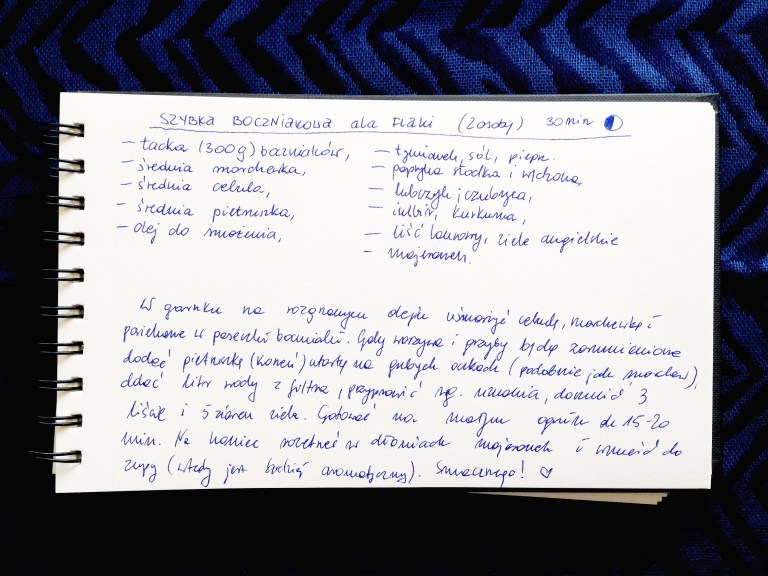 SZYBKA BOCZNIAKOWA ala FLAKI (2 osoby) 30 min
– tacka (300g) boczniaków,
– średnia marchewka,
– średnia cebula,
– średnia pietruszka,
– olej do smażenia,
– tymianek, sól, pieprz.
– papryka słodka i wędzona,
– lubczyk i czubryca,
– imbir, kurkuma,
– liść laurowy, ziele angielskie
– majeranek.
W garnku na rozgrzanym oleju usmażyć cebulę, marchewkę i
posiekane w paseczki boczniaki. Gdy warzywa i grzyby będą zarumienione
dodać pietruszkę (korzeń) utartą na grubych oczkach (podobnie jak marchew),
dodać litr wody z filtra, przyprawić wg. uznania, dorzucić 3
listki i 5 ziaren ziela. Gotować na małym ogniu ok 15-20
min. Na koniec rozetrzeć w dłoniach majeranek i wrzucić do
zupy (wtedy jest bardziej aromatyczny). Smacznego! ♡